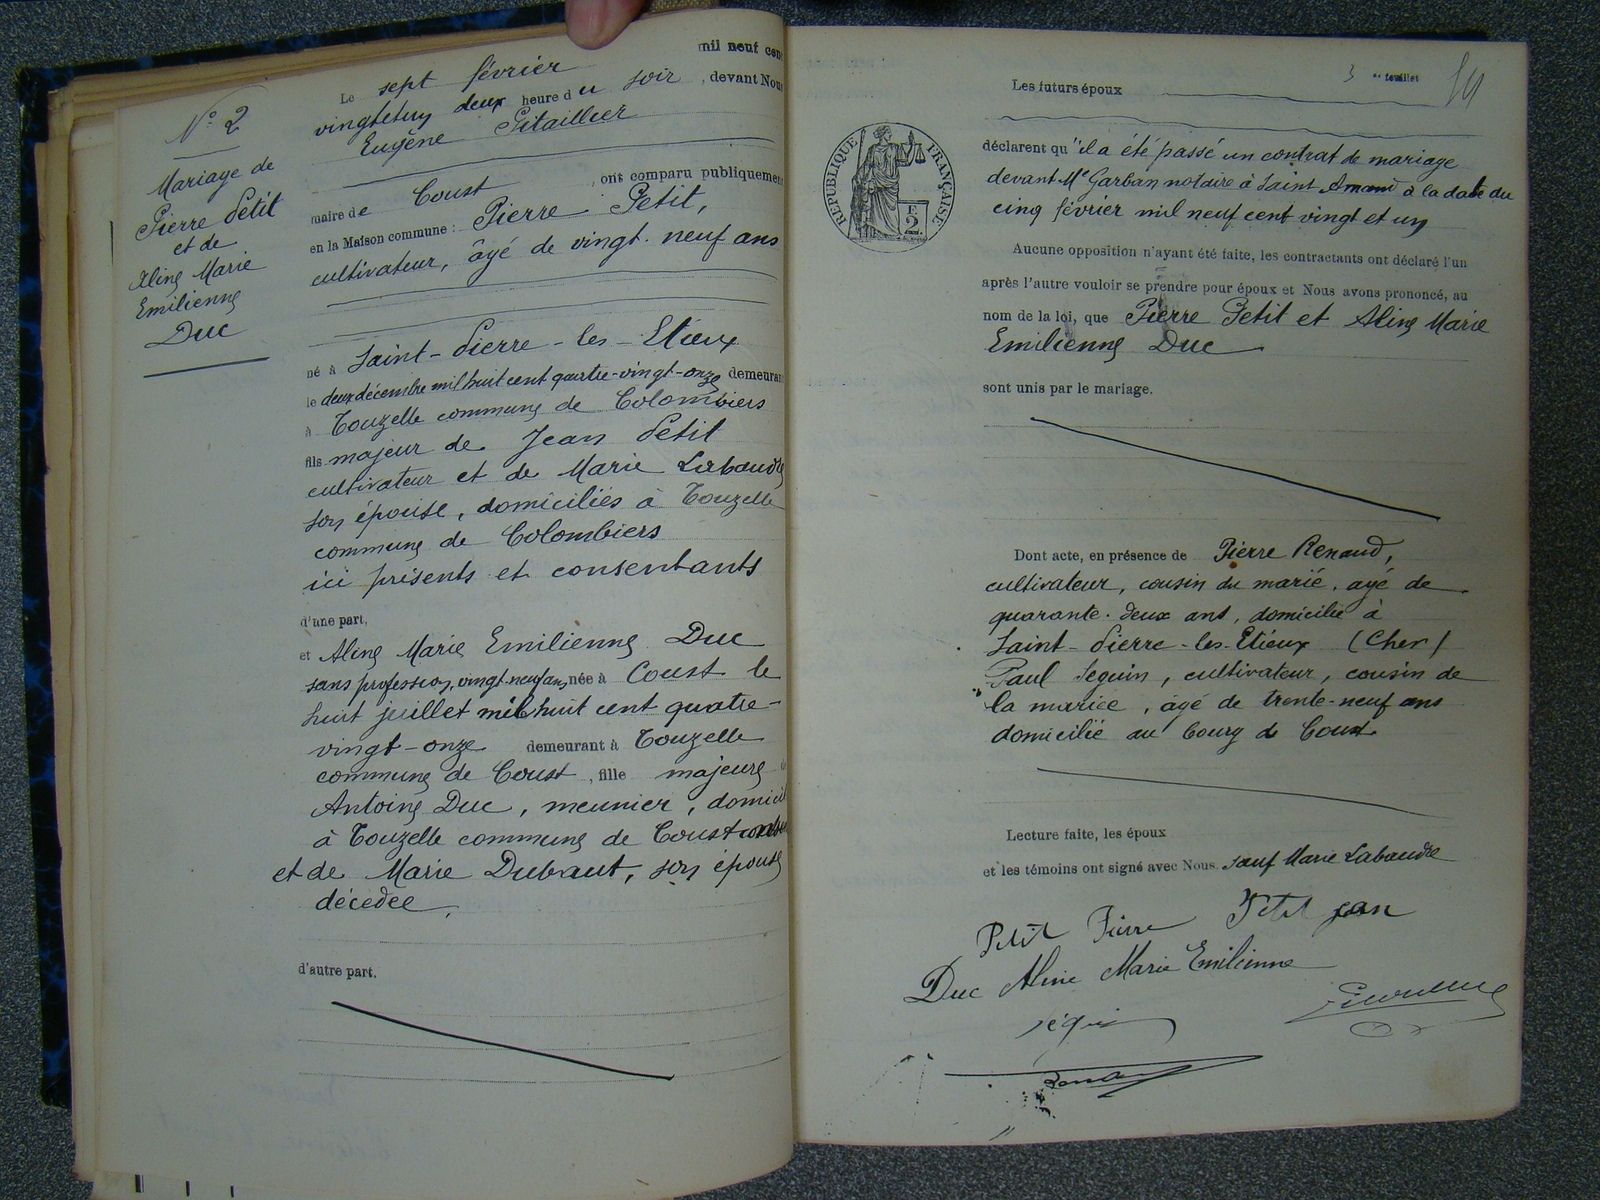 N° 2
Mariage de
Pierre Petit
et de
Aline Marie
Emilienne
Duc
Le sept février mil neuf cent
vingt et un deux heure du soir, devant Nous
Eugène Pitaillier
maire de Coust, ont comparu publiquement
en la Maison commune : Pierre Petit,
cultivateur, âgé de vingt-neuf ans
né à Saint-Pierre-les-Etieux
le deux décembre mil huit cent quatre-vingt-onze demeurant
à Touzelle commune de Colombiers
fils majeur de Jean Petit
cultivateur et de Marie Labaudre
son épouse, domiciliés à Touzelle
commune de Colombiers
ici présents et consentants
d'une part,
et Aline Marie Emilienne Duc
sans profession, vingt-neuf ans, née à Coust le
huit juillet mil huit cent quatre-
vingt-onze demeurant à Touzelle
commune de Coust, fille majeure
Antoine Duc, meunier, domicil
à Touzelle commune de Coust
et de Marie Dubaut, son épouse
décédée.
d'autre part.
3 me feuillet
Les futurs époux
RÉPUBLIQUE FRANÇAISE
F
2
déclarent qu'il a été passé un contrat de mariage
devant Me Garban notaire à Saint Amand à la date du
cinq février mil neuf cent vingt et un
Aucune opposition n'ayant été faite, les contractants ont déclaré l'un
après l'autre vouloir se prendre pour époux et Nous avons prononcé, au
nom de la loi, que Pierre Petit et Aline Marie
Emilienne Duc
sont unis par le mariage.
Dont acte, en présence de Pierre Renaud,
cultivateur, cousin du marié, âgé de
quarante-deux ans, domicilié à
Saint-Pierre-les-Etieux (Cher)
Paul Seguin, cultivateur, cousin de
la mariée, âgé de trente-neuf ans
domicilié au bourg de Coust
Lecture faite, les époux
et les témoins ont signé avec Nous. sauf Marie Labaudre
Petit Pierre Petit jean
Duc Aline Marie Emilienne